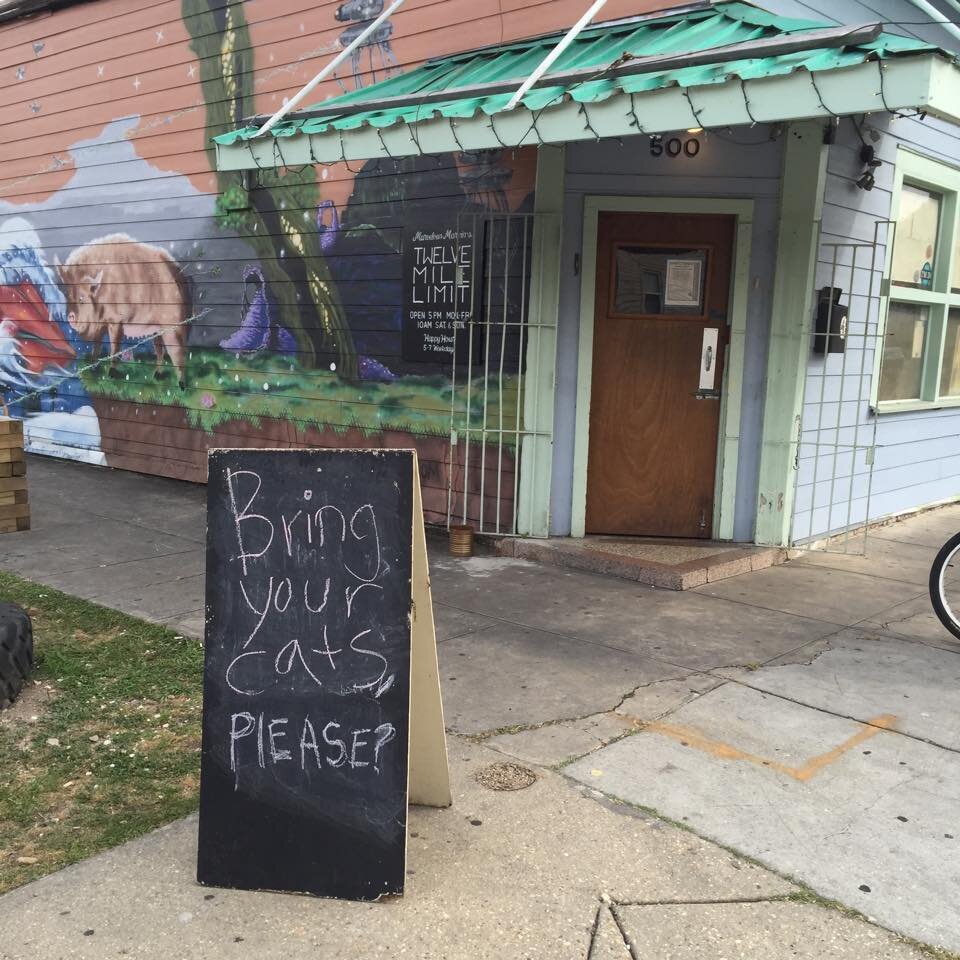 500
Marvelous Marvin's
TWELVE
MILE
LIMIT
OPEN 5PM MON-FRI
10AM SAT. & SUN.
Happy Hour
5-7 Weekdays
Bring
your
Cats,
PLEASE?